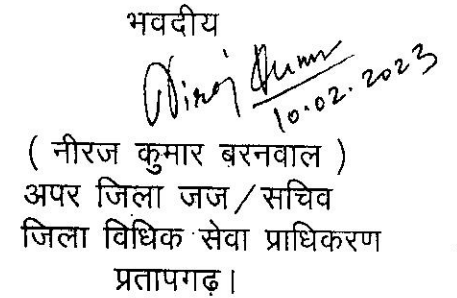 भवदीय
Niraj Kumar
10.02.2023
( नीरज कुमार बरनवाल )
अपर जिला जज/सचिव
जिला विधिक सेवा प्राधिकरण
प्रतापगढ़।